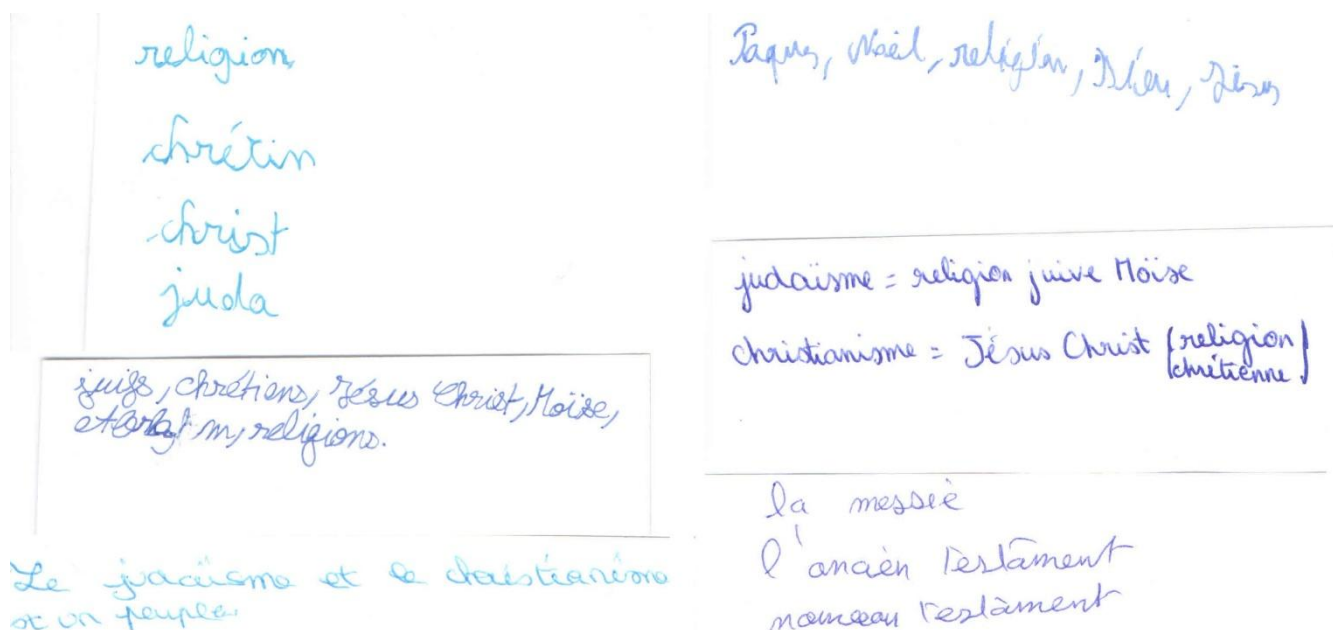 religion
chrétin
christ
juda
juifs, chrétiens, Jésus Christ, Moïse,
religions.
Le judaïsme et le christianisme
et un peuple
Paques, Noël, religion, Dieu, Jésus
judaïsme = religion juive Moïse
christianisme = Jésus Christ (religion
chrétienne)
la messie
l'ancien testament
nouveau testament